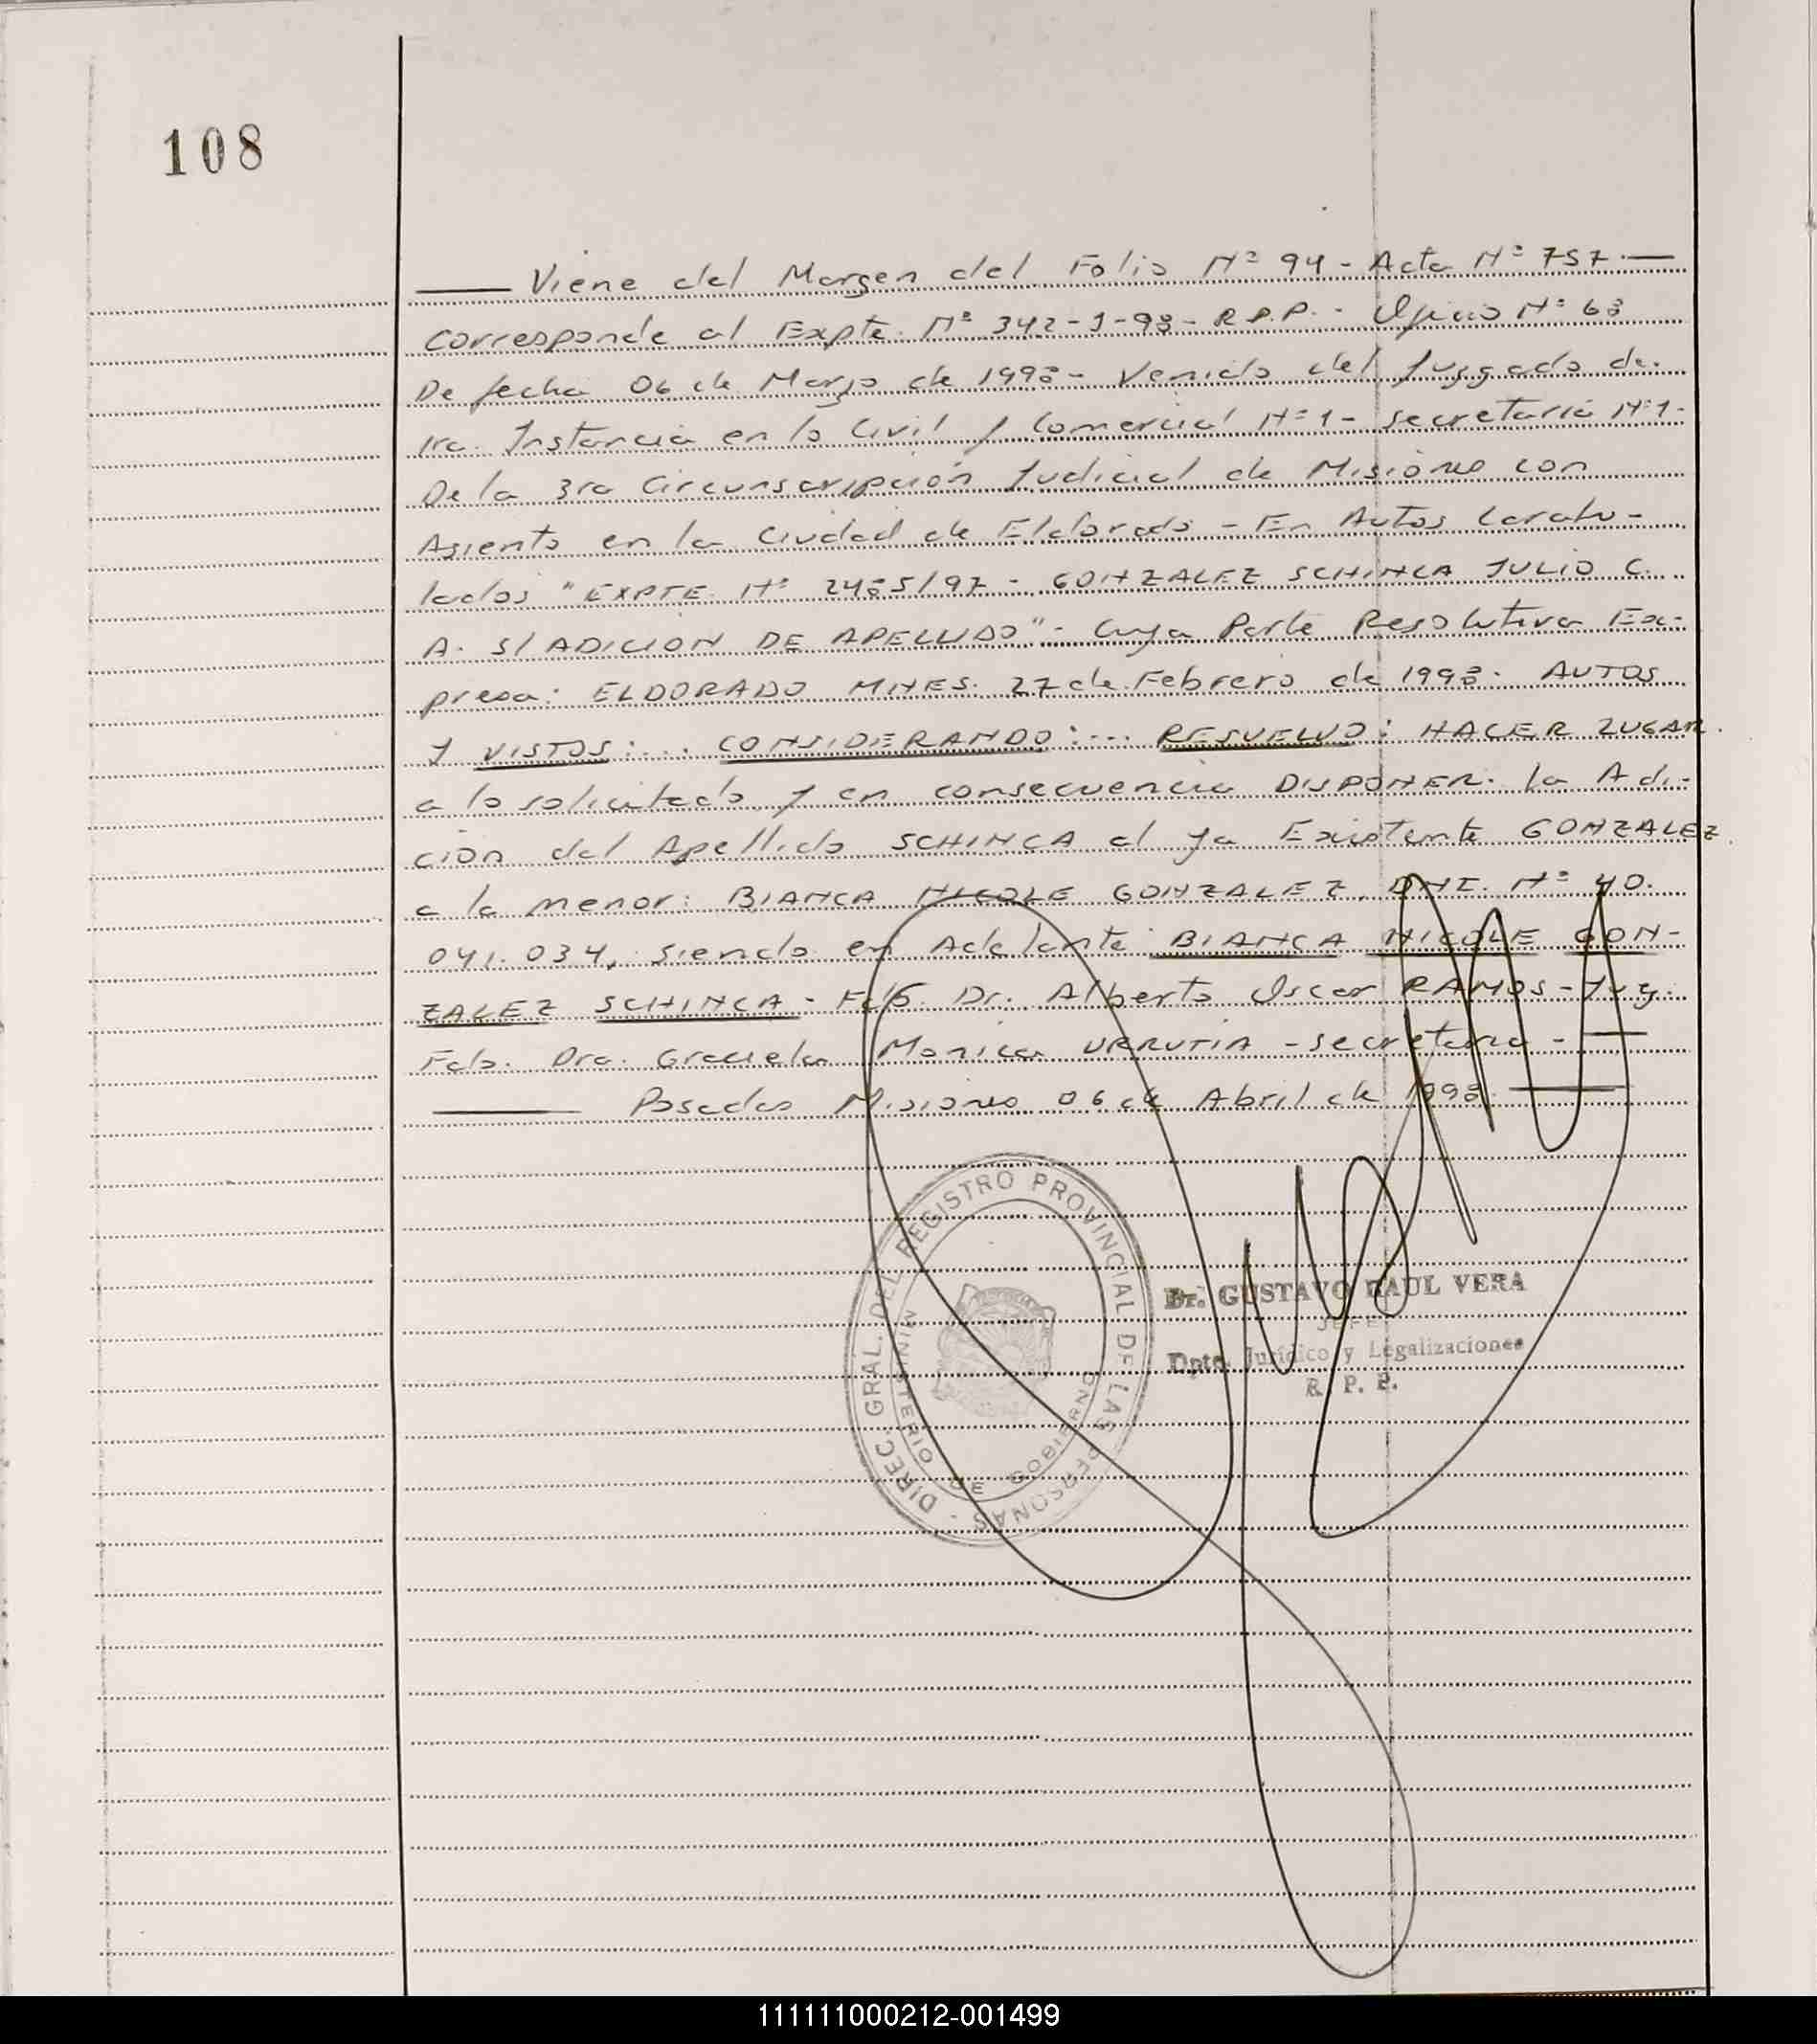 108
Viene del Margen del Folio Nº 94 - Acta Nº 757.
corresponde al Expte. Nº 342-J-98 - R.P.P. - Oficio Nº 68
De fecha 06 de Marzo de 1998 - Venido del Juzgado de.
1ra. Instancia en lo Civil y Comercial Nº 1 - secretaria Nº 1-
De la 3ra Circunscripción Judicial de Misiones con
Asiento en la Ciudad de Eldorado - En Autos Caratu-
lados "EXPTE. Nº 2485/97 - GONZALEZ SCHINCA JULIO C.
A. S/ ADICION DE APELLIDO" - Cuya Parte Resolutiva Ex-
presa: ELDORADO MNES. 27 de Febrero de 1998. AUTOS
Y VISTOS:... CONSIDERANDO:... RESUELVO: HACER LUGAR
a lo solicitado y en consecuencia DISPONER. La Adi-
ción del Apellido SCHINCA al ya Existente GONZALEZ
a la menor: BIANCA NICOLE GONZALEZ, DNI. Nº 40.
041.034, siendo en Adelante BIANCA NICOLE GON-
ZALEZ SCHINCA - Fdo. Dr. Alberto Oscar RAMOS - Juez.
Fdo. Dra. Graciela Monica URRUTIA - secretaria -
Posadas Misiones 06 de Abril de 1998.
DIREC. GRAL. DEL REGISTRO PROVINCIAL DE LAS PERSONAS -
MINISTERIO DE GOBIERNO
Dr. GUSTAVO RAUL VERA
JEFE
Dpto. Jurídico y Legalizaciones
R. P. P.
111111000212-001499